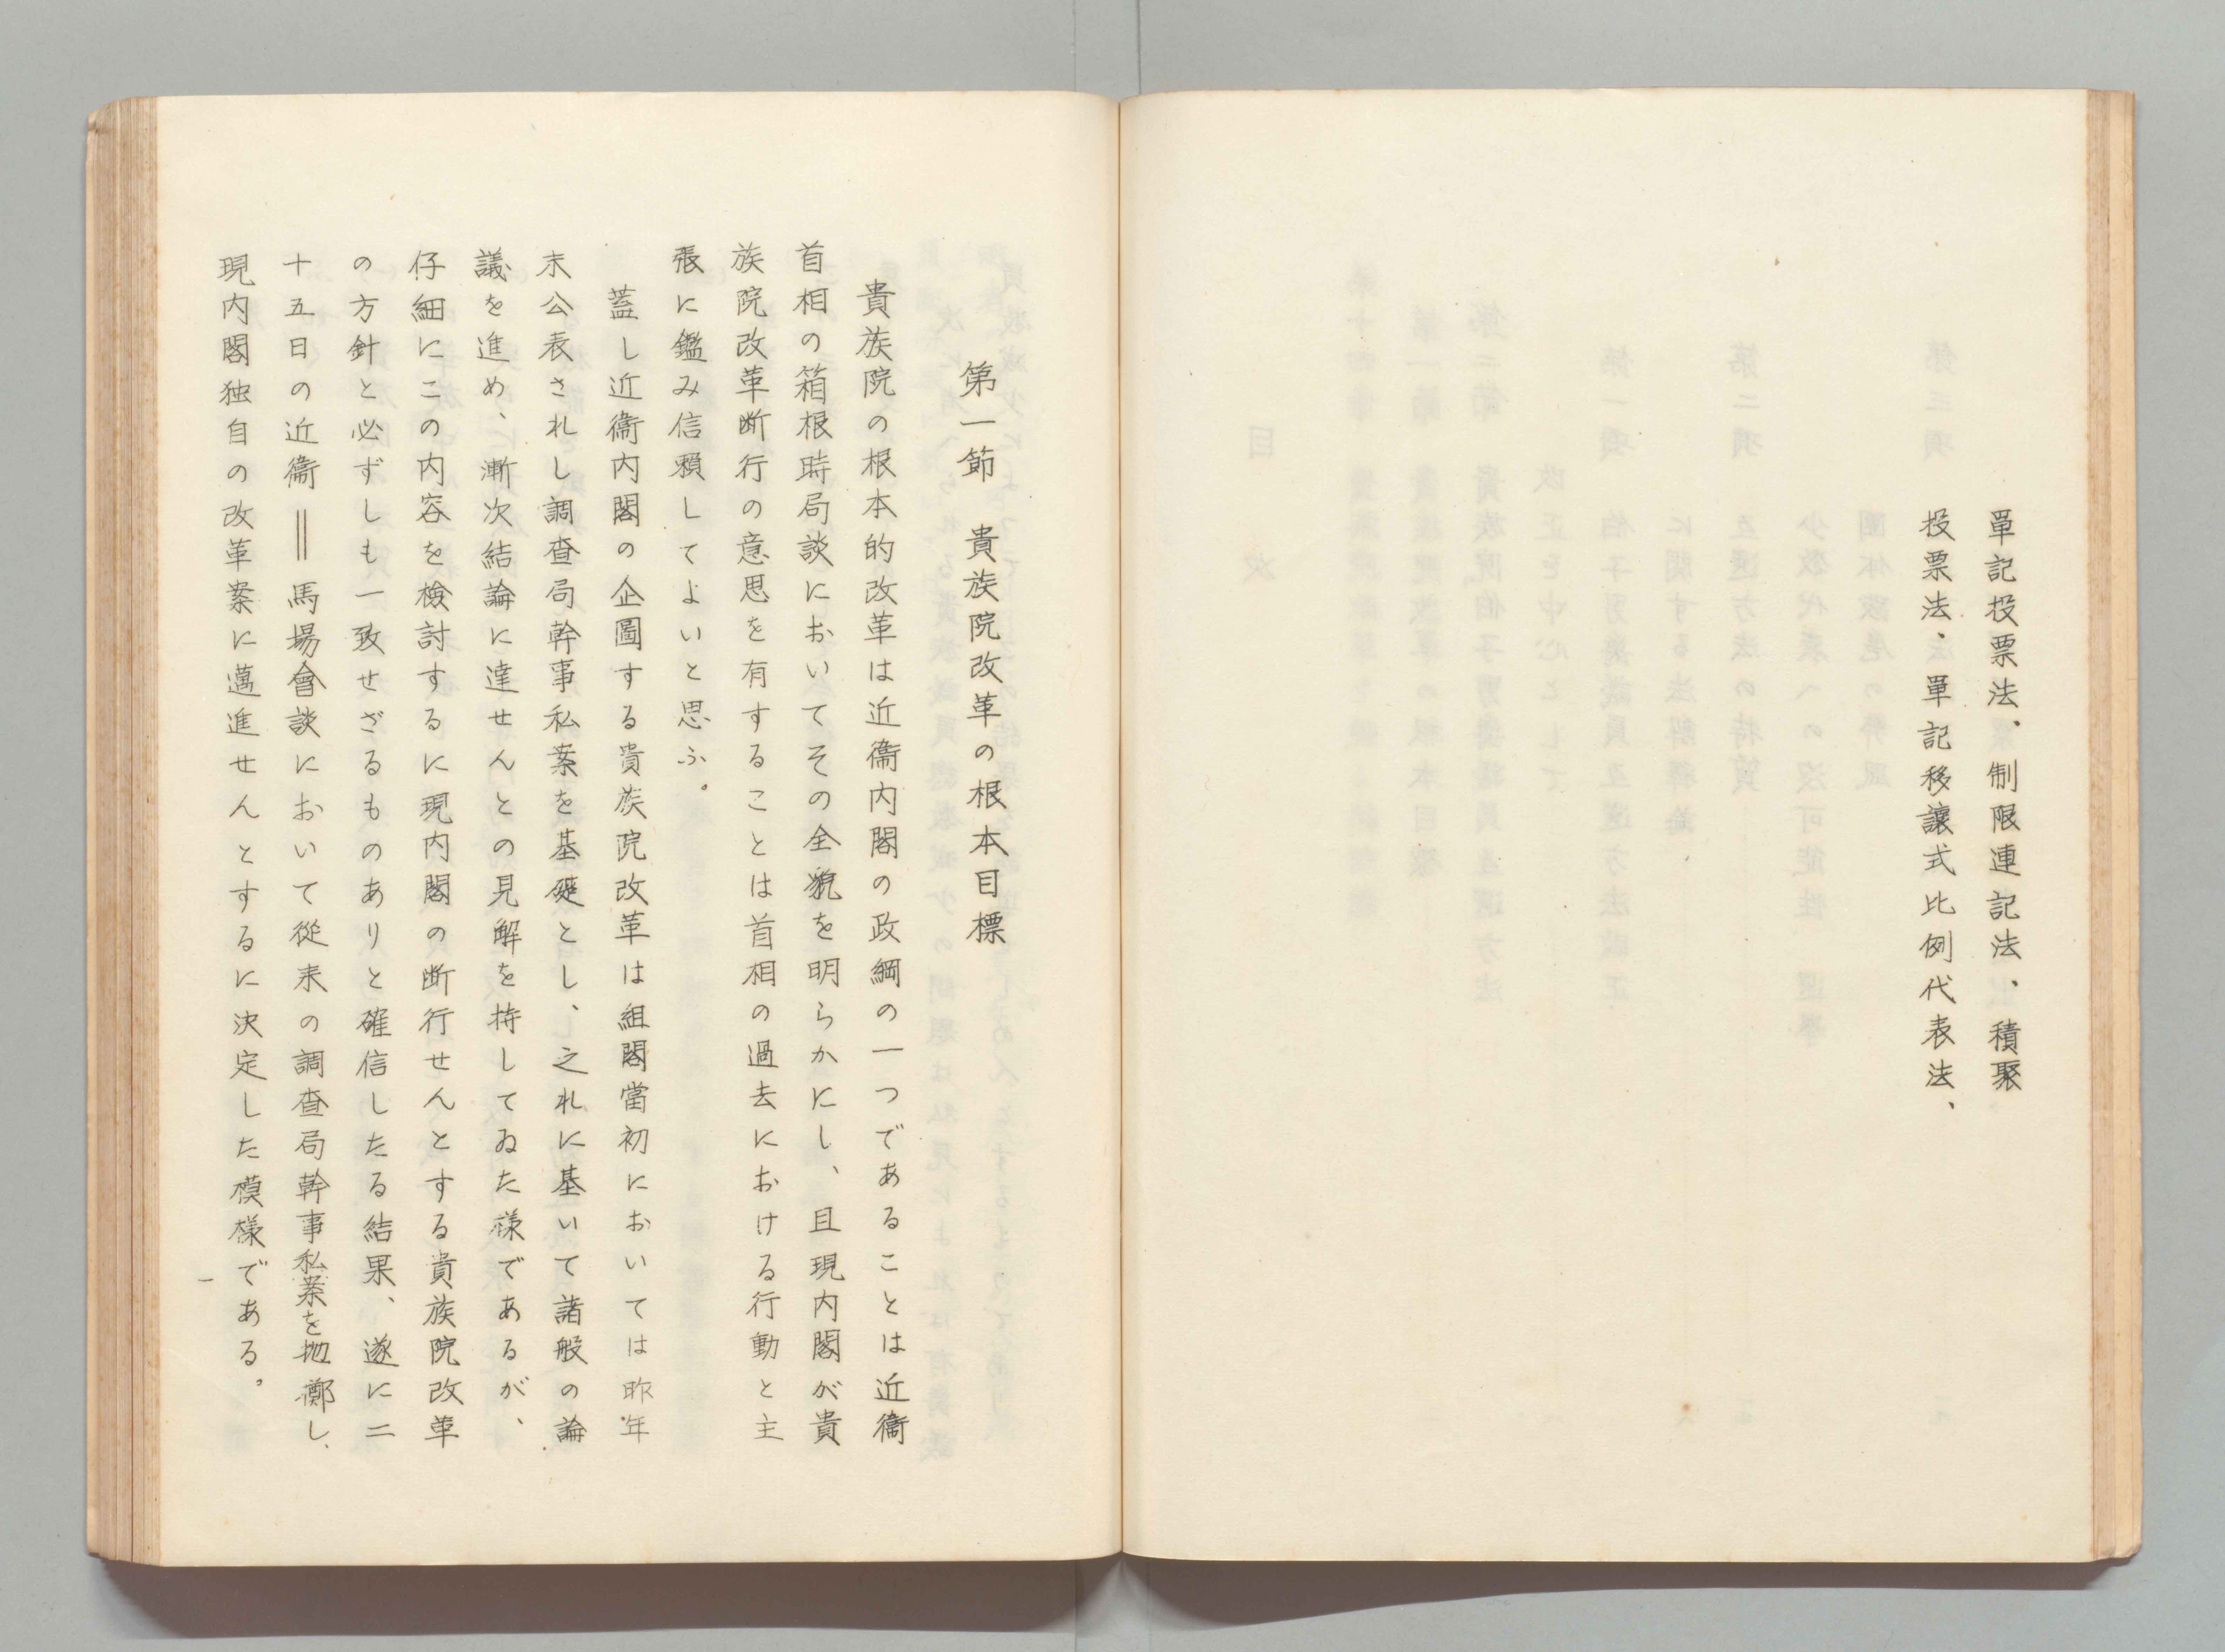 單記投票法、制限連記法、積聚
投票法、單記移讓式比例代表法、
第一節　貴族院改革の根本目標
貴族院の根本的改革は近衞内閣の政綱の一つであることは近衞
首相の箱根時局談においてその全貌を明らかにし、且現内閣が貴
族院改革断行の意思を有することは首相の過去における行動と主
張に鑑み信賴してよいと思ふ。
蓋し近衞内閣の企圖する貴族院改革は組閣當初においては昨年
末公表されし調査局幹事私案を基礎とし、之れに基いて諸般の論
議を進め、漸次結論に達せんとの見解を持してゐた様であるが、
仔細にこの内容を檢討するに現内閣の断行せんとする貴族院改革
の方針と必ずしも一致せざるものありと確信したる結果、遂に二
十五日の近衞＝馬場會談において從来の調査局幹事私案を抛擲し、
現内閣独自の改革案に邁進せんとするに決定した模様である。
一